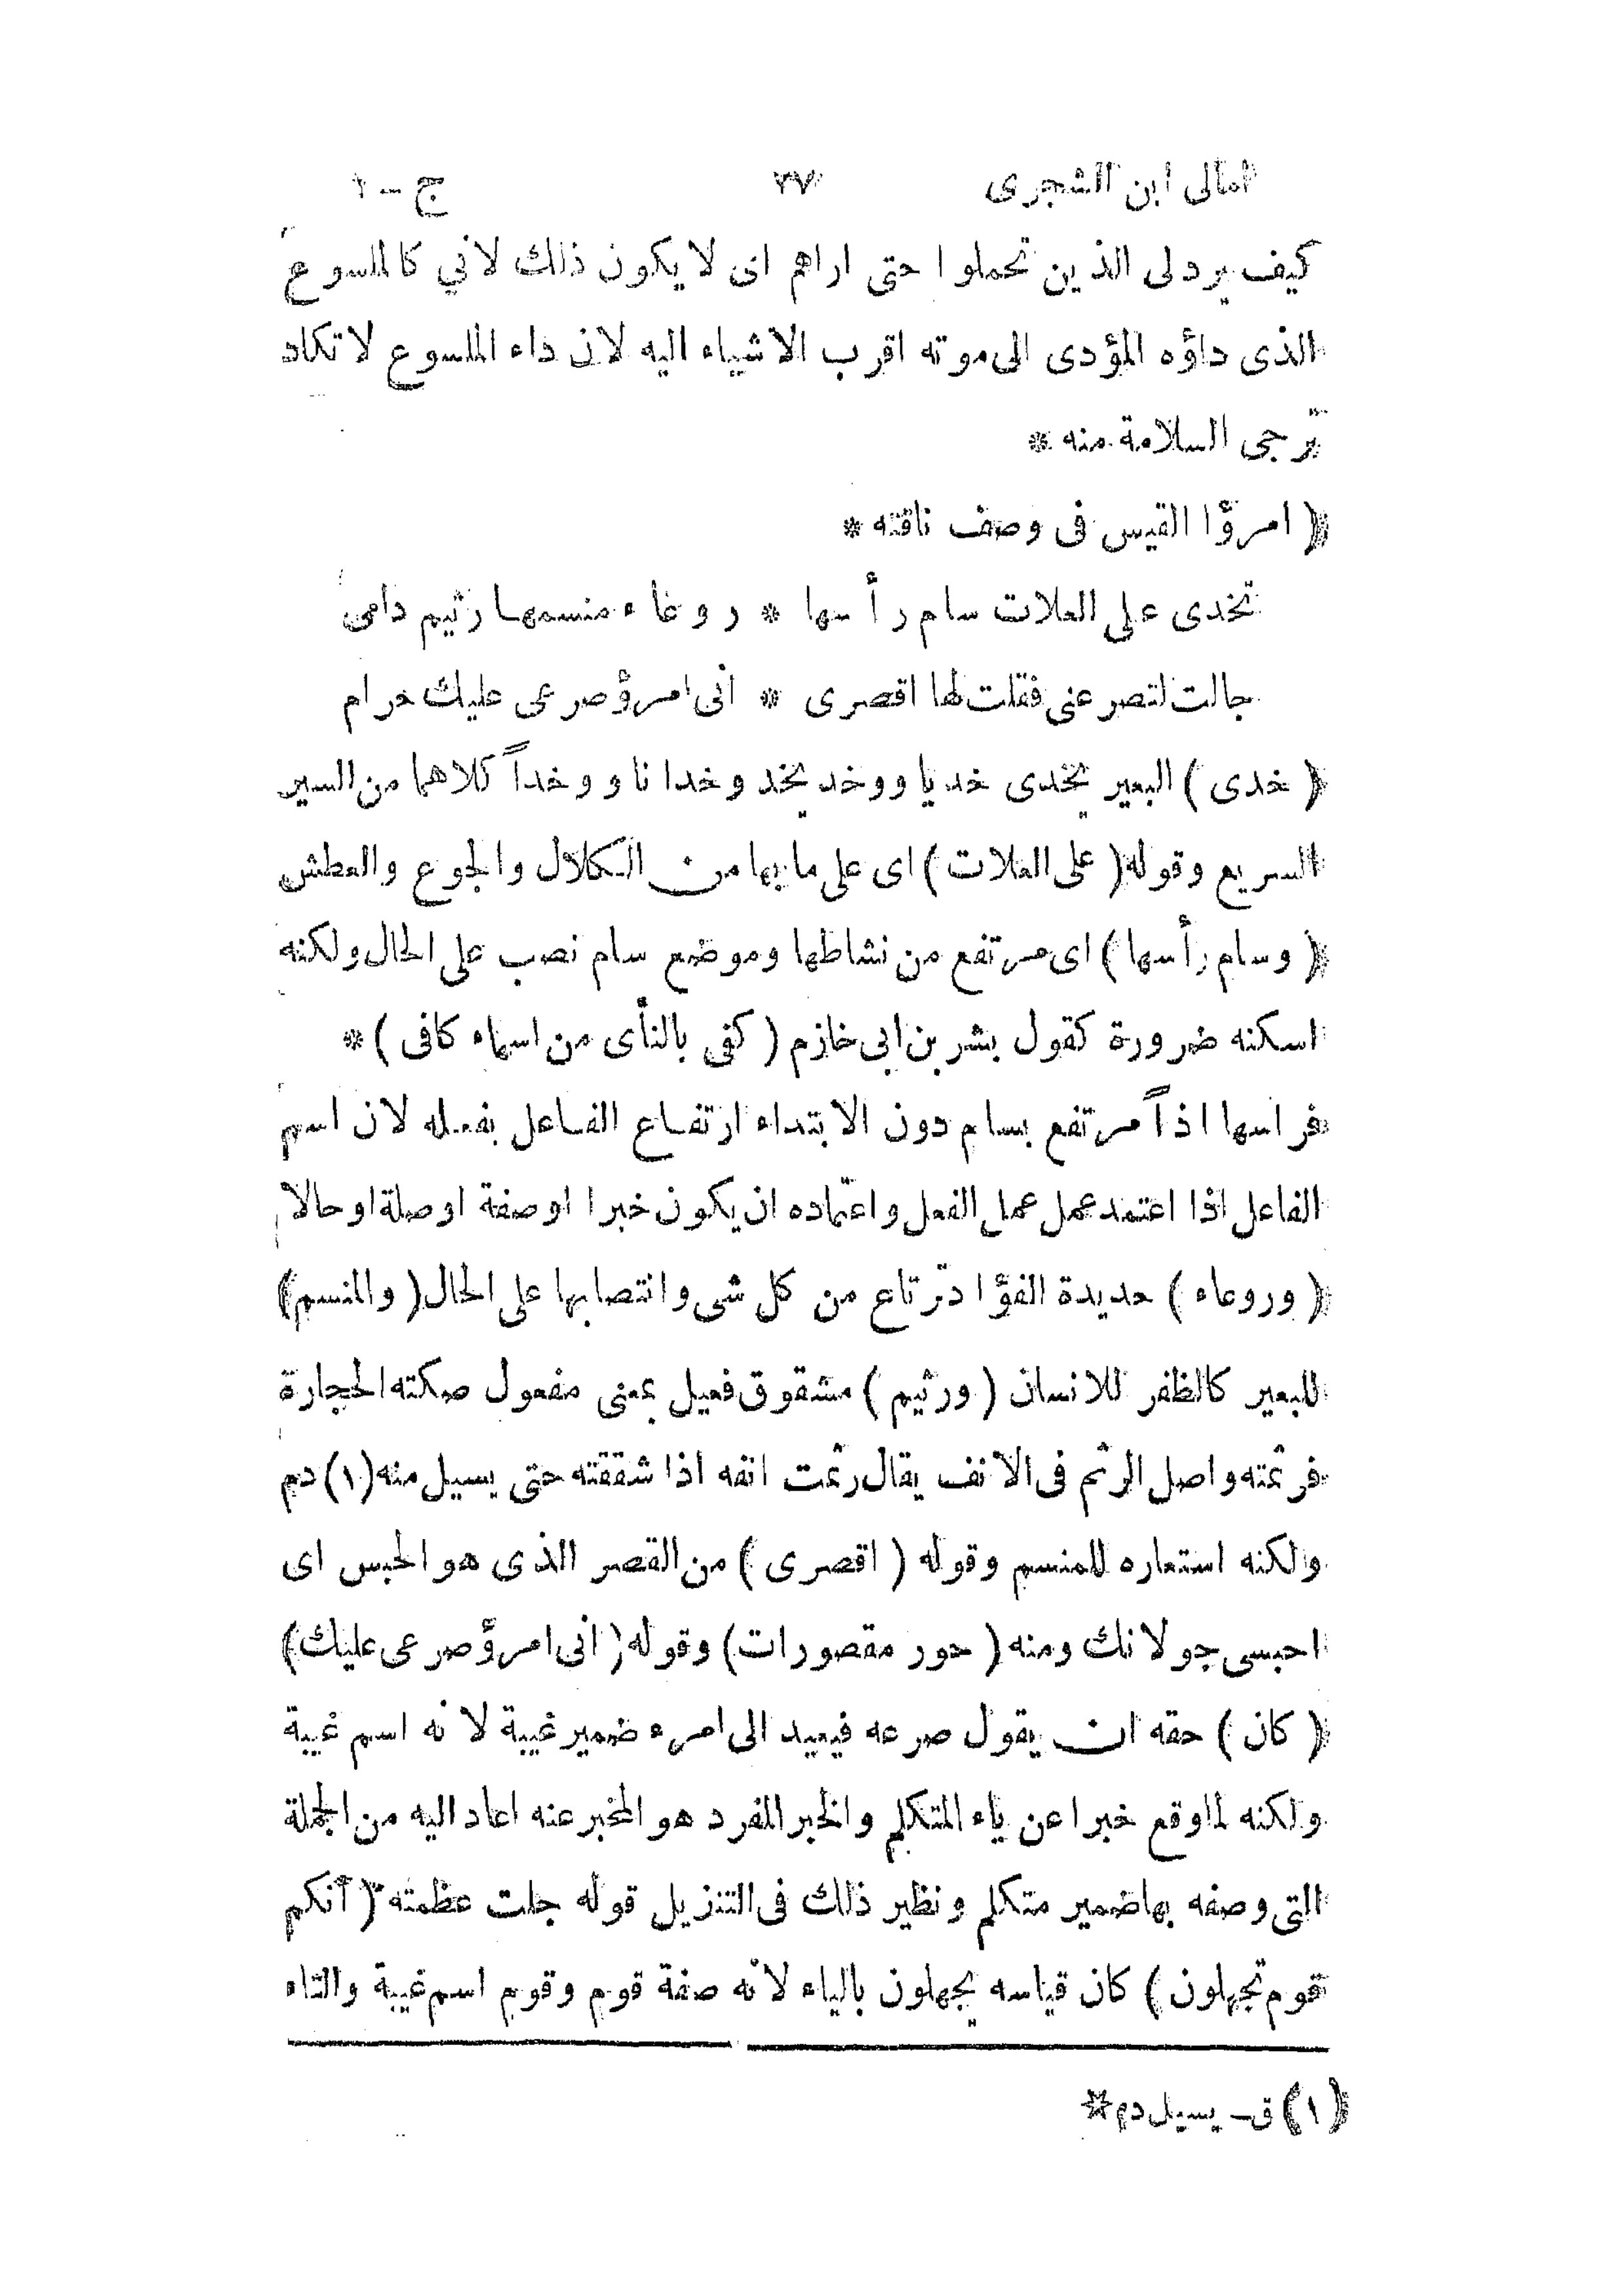 امالى ابن الشجرى ٢٧ ج - ١
كيف يرد لى الذين تحملوا حتى اراهم اى لا يكون ذلك لاني كالملسوع
الذى داؤه المؤدى الى موته اقرب الاشياء اليه لان داء الملسوع لا تكاد
ترجى السلامة منه *
( امرؤا القيس فى وصف ناقته *
تخدى على العلات سام رأسها * روعاء منسمها رثيم دامى
جالت لتصرعنى فقلت لها اقصرى * انى امرؤ صرعى عليك حرام
( خدى ) البعير يخدى خديا ووخد يخد وخدانا ووخداً كلاهما من السير
السريع وقوله ( على العلات ) اى على ما بها من الكلال والجوع والعطش
( وسام رأسها ) اى مرتفع من نشاطها وموضع سام نصب على الحال ولكنه
اسكنه ضرورة كقول بشر بن ابى خازم ( كفى بالنأى من اسماء كافى ) *
فراسها اذاً مرتفع بسام دون الابتداء ارتفاع الفاعل بفعله لان اسم
الفاعل اذا اعتمد عمل عمل الفعل واعتماده ان يكون خبرا او صفة او صلة او حالا
( وروعاء ) حديدة الفؤاد ترتاع من كل شى وانتصابها على الحال ( والمنسم )
للبعير كالظفر للانسان ( ورثيم ) مشقوق فعيل بمعنى مفعول صكته الحجارة
فرثمته واصل الرثم فى الانف يقال رثمت انفه اذا شققته حتى يسيل منه (١) دم
ولكنه استعاره للمنسم وقوله ( اقصرى ) من القصر الذى هو الحبس اى
احبسى جولانك ومنه ( حور مقصورات ) وقوله ( انى امرؤ صرعى عليك )
( كان ) حقه ان يقول صرعه فيعيد الى امرء ضمير غيبة لانه اسم غيبة
ولكنه لما وقع خبرا عن ياء المتكلم والخبر المفرد هو المخبر عنه اعاد اليه من الجملة
التى وصفه بها ضمير متكلم ونظير ذلك فى التنزيل قوله جلت عظمته ( أنكم
قوم تجهلون ) كان قياسه يجهلون بالياء لانه صفة قوم وقوم اسم غيبة والتاء
(١) ق - يسيل دم *